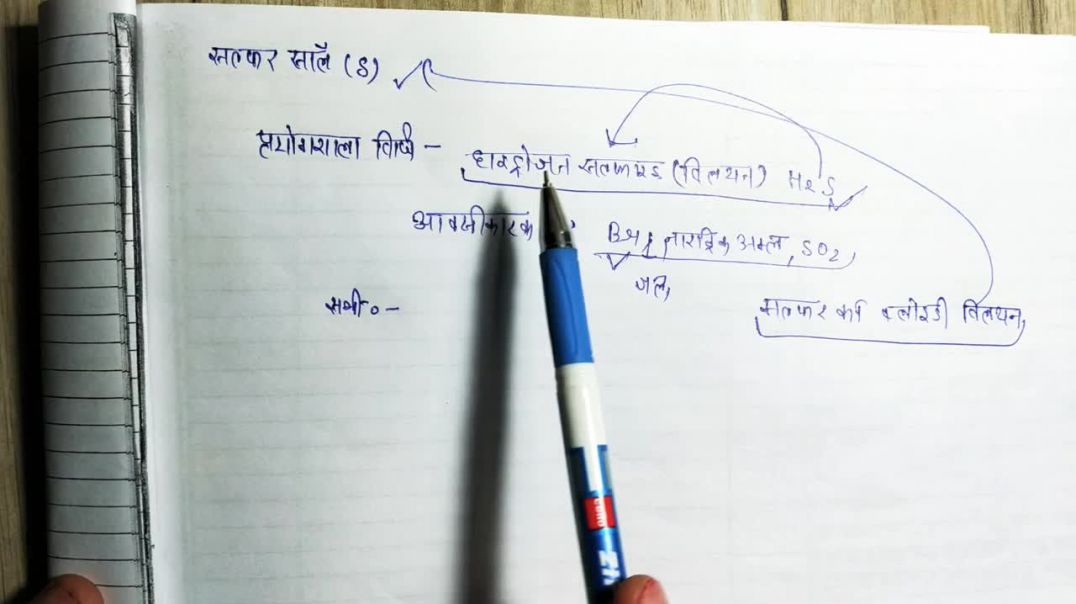 सल्फर सॉल (S)
प्रयोगशाला विधि -
हाइड्रोजन सल्फाइड (विलयन) H2S
आक्सीकारक
Br2, नाइट्रिक अम्ल, SO2,
जल,
समी० :-
सल्फर का क्लोइडी विलयन,